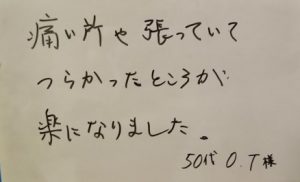 痛い所や張っていて
つらかったところが
楽になりました。
50代 O.T様